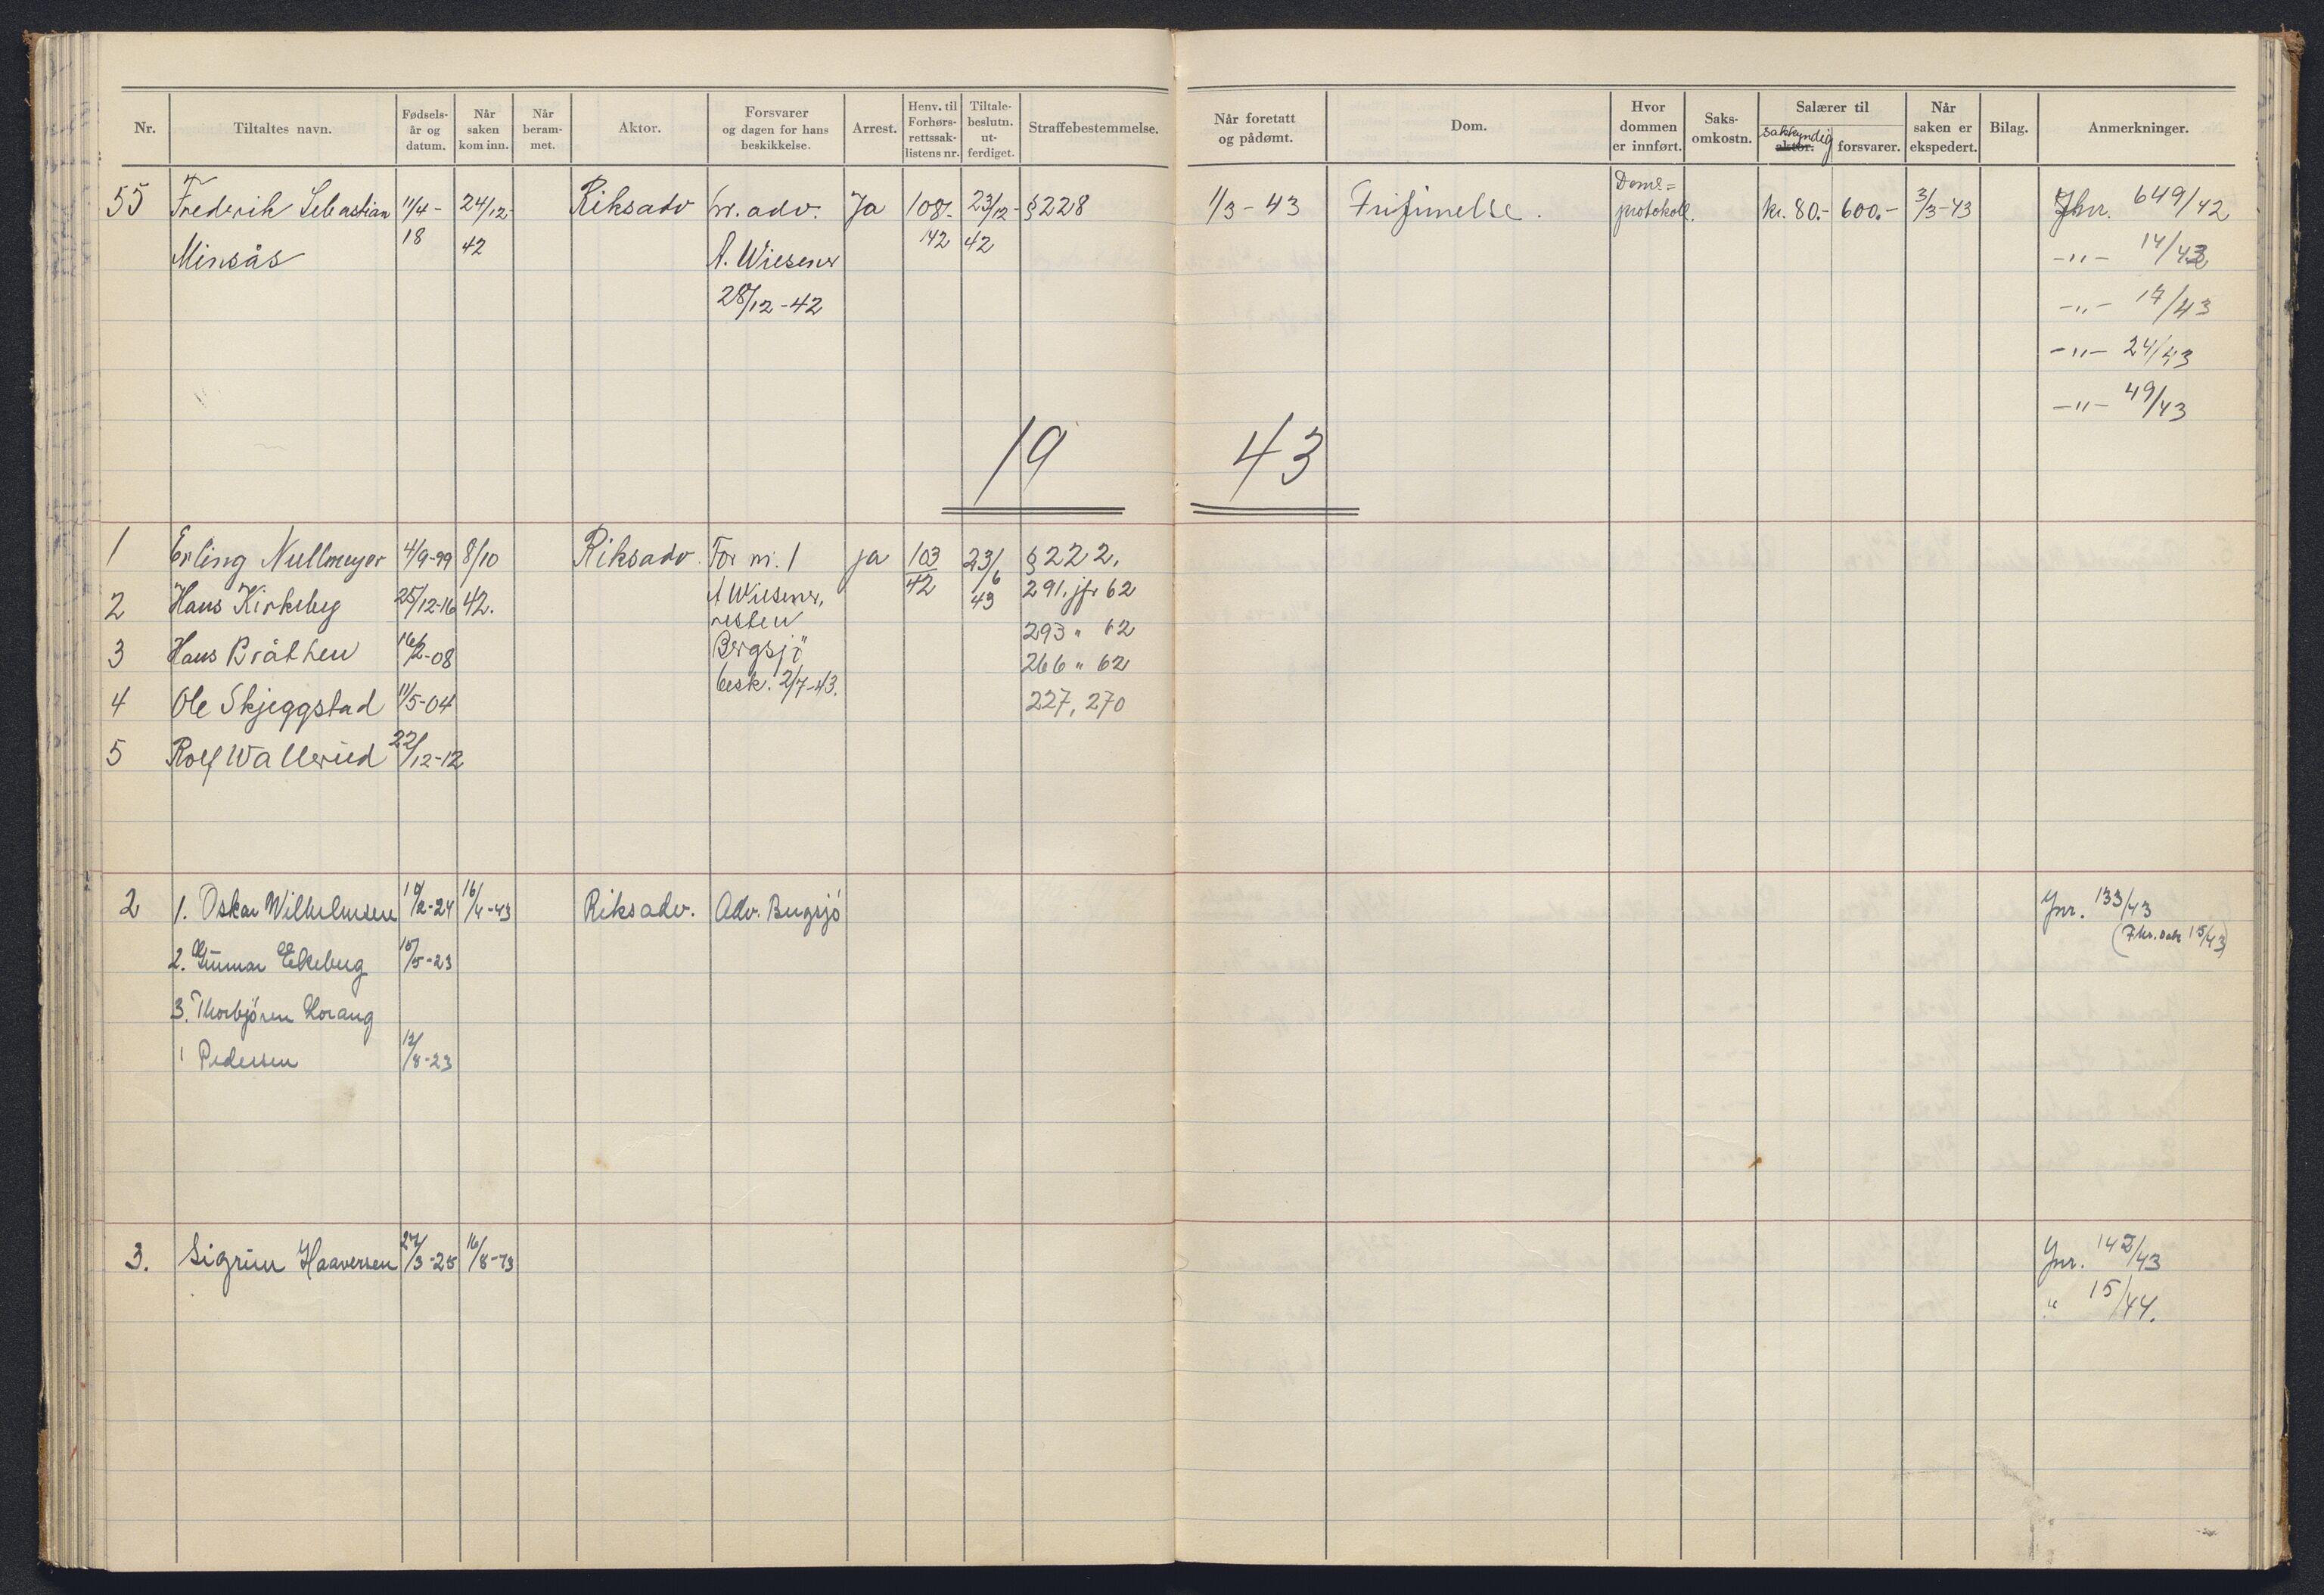 Nr. Tiltaltes navn. Fødsels- år og datum. Når saken kom inn. Når beram- met. Aktor. Forsvarer og dagen for hans beskikkelse. Arrest. Henv. til Forhørs- rettssak- listens nr. Tiltale- beslutn. ut- ferdiget. Straffebestemmelse. Når foretatt og pådømt. Dom. Hvor dommen er innført. Saks- omkostn. Salærer til sakkyndig aktor. forsvarer. Når saken er ekspedert. Bilag. Anmerkninger.
55 Frederik Sebastian 11/4- 24/12- Riksadv hr. adv. Ja 108/- 23/12- § 228 1/3-43 Frifinnelse. Doms= protokoll. kr. 80.- 600.- 3/3-43 Jnr. 649/42
Minsås 18 42 A. Wiesener 142 42 -"- 14/43
28/12-42 -"- 17/43
-"- 24/43
-"- 49/43
19 43
1 Erling Nullmeyer 4/9-99 8/10 Riksadv. For nr. 1 ja 103/42 23/6 43 § 222,
2 Hans Kirkeby 25/12-16 42. A Wiesener, 291. jfr 62
resten
3 Hans Bråthen 16/2-08 Bergsjö 293 " 62
266 " 62
4 Ole Skjeggstad 11/5-04 besk. 2/7-43. 227, 270
5 Rolf Wallerud 22/12-12
2 1. Oskar Wilhelmsen 10/2-24 16/4-43 Riksadv. Adv. Bergsjö Jnr. 133/43
(F.hr.sak 15/43)
2. Gunnar Ekeberg 15/5-23
3. Thorbjörn Korang
Pedersen 12/8-23
3. Sigrun Haaversen 27/3-25 16/8-43 Jnr. 142/43
" 15/44.